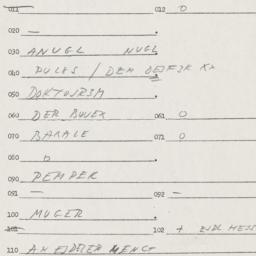 011 012 O
020 —
030 ANUGL NUGL
040 PULES / DEM
050 DOKTOJRSM
060 DER BULEX 061 O
070 BARALE 071 O
080 O
090 PEMPER
091 — 092 —
100 MUGER
101 102 + EIDL HESS
110 AN ELDTER MENCT